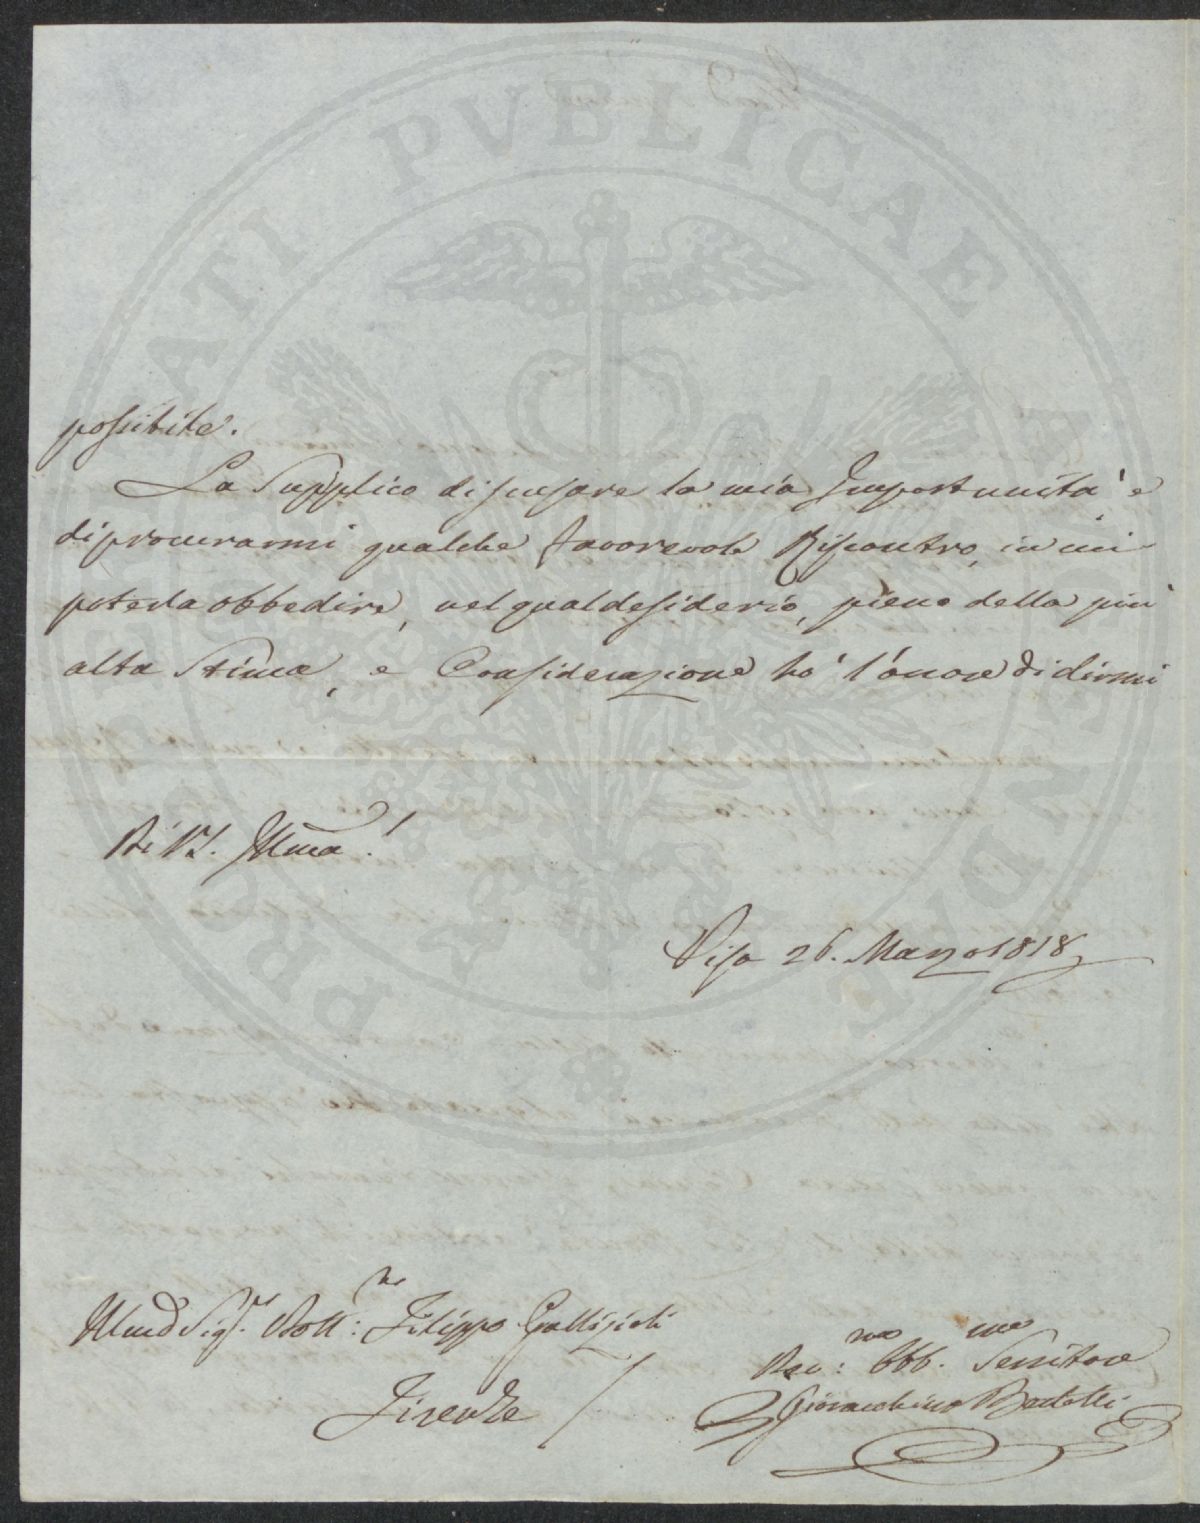 possibile.
La Supplico di scusare la mia Importunità e
di procurarmi qualche favorevole Riscontro, in cui
poterla obbedire, nel qual desiderio, pieno della più
alta Stima, e Considerazione hò l'onore di dirmi
Di V.S. Illma!
Pisa 26. Marzo 1818
Illmo Sigr. Dott: Filippo Gallizioli
Firenze
Dev:mo Obb.mo Servitore
Giovacchino Bertelli